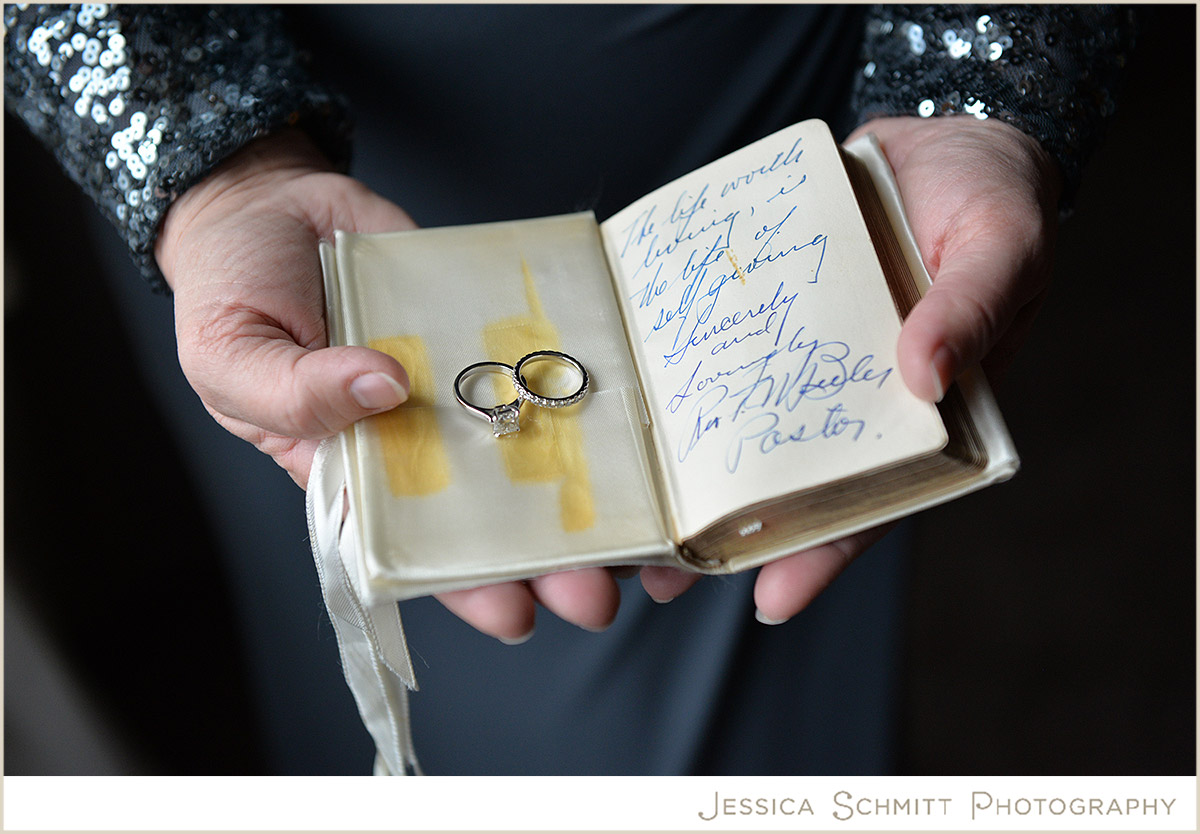 The life worth
living, is
the life of
self giving
Sincerely
and
Lovingly
Rev F. W.
Pastor.
JESSICA SCHMITT PHOTOGRAPHY